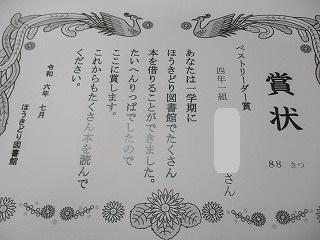 賞状
88 さつ
ベストリーダー賞
四年一組
さん
あなたは一学期に
ほうきどり図書館でたくさん
本を借りることができました。
たいへんりっぱでしたので
ここに賞します。
これからもたくさん本を読んで
ください。
令和 六年 七月
ほうきどり図書館